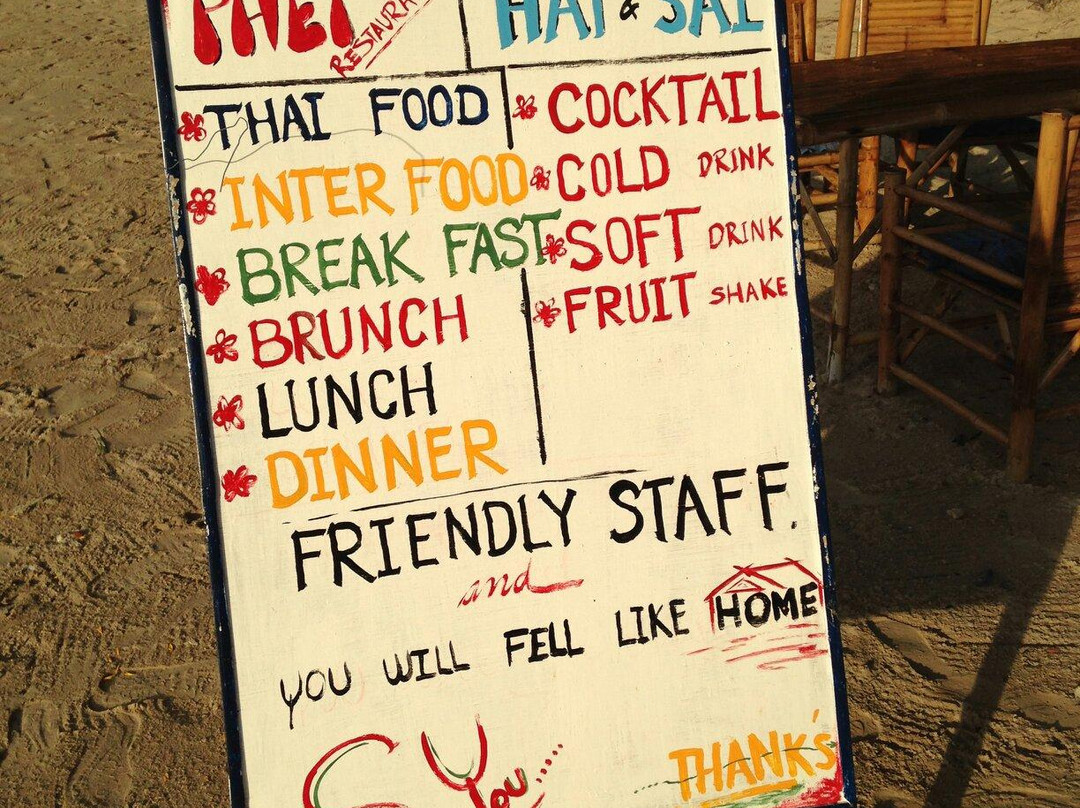 PHET
RESTAURA
HAT & SAI
THAI FOOD
INTER FOOD
BREAK FAST
BRUNCH
LUNCH
DINNER
COCKTAIL
COLD DRINK
SOFT DRINK
FRUIT SHAKE
FRIENDLY STAFF.
and
YOU WILL FELL LIKE HOME
C You.....
THANK'S